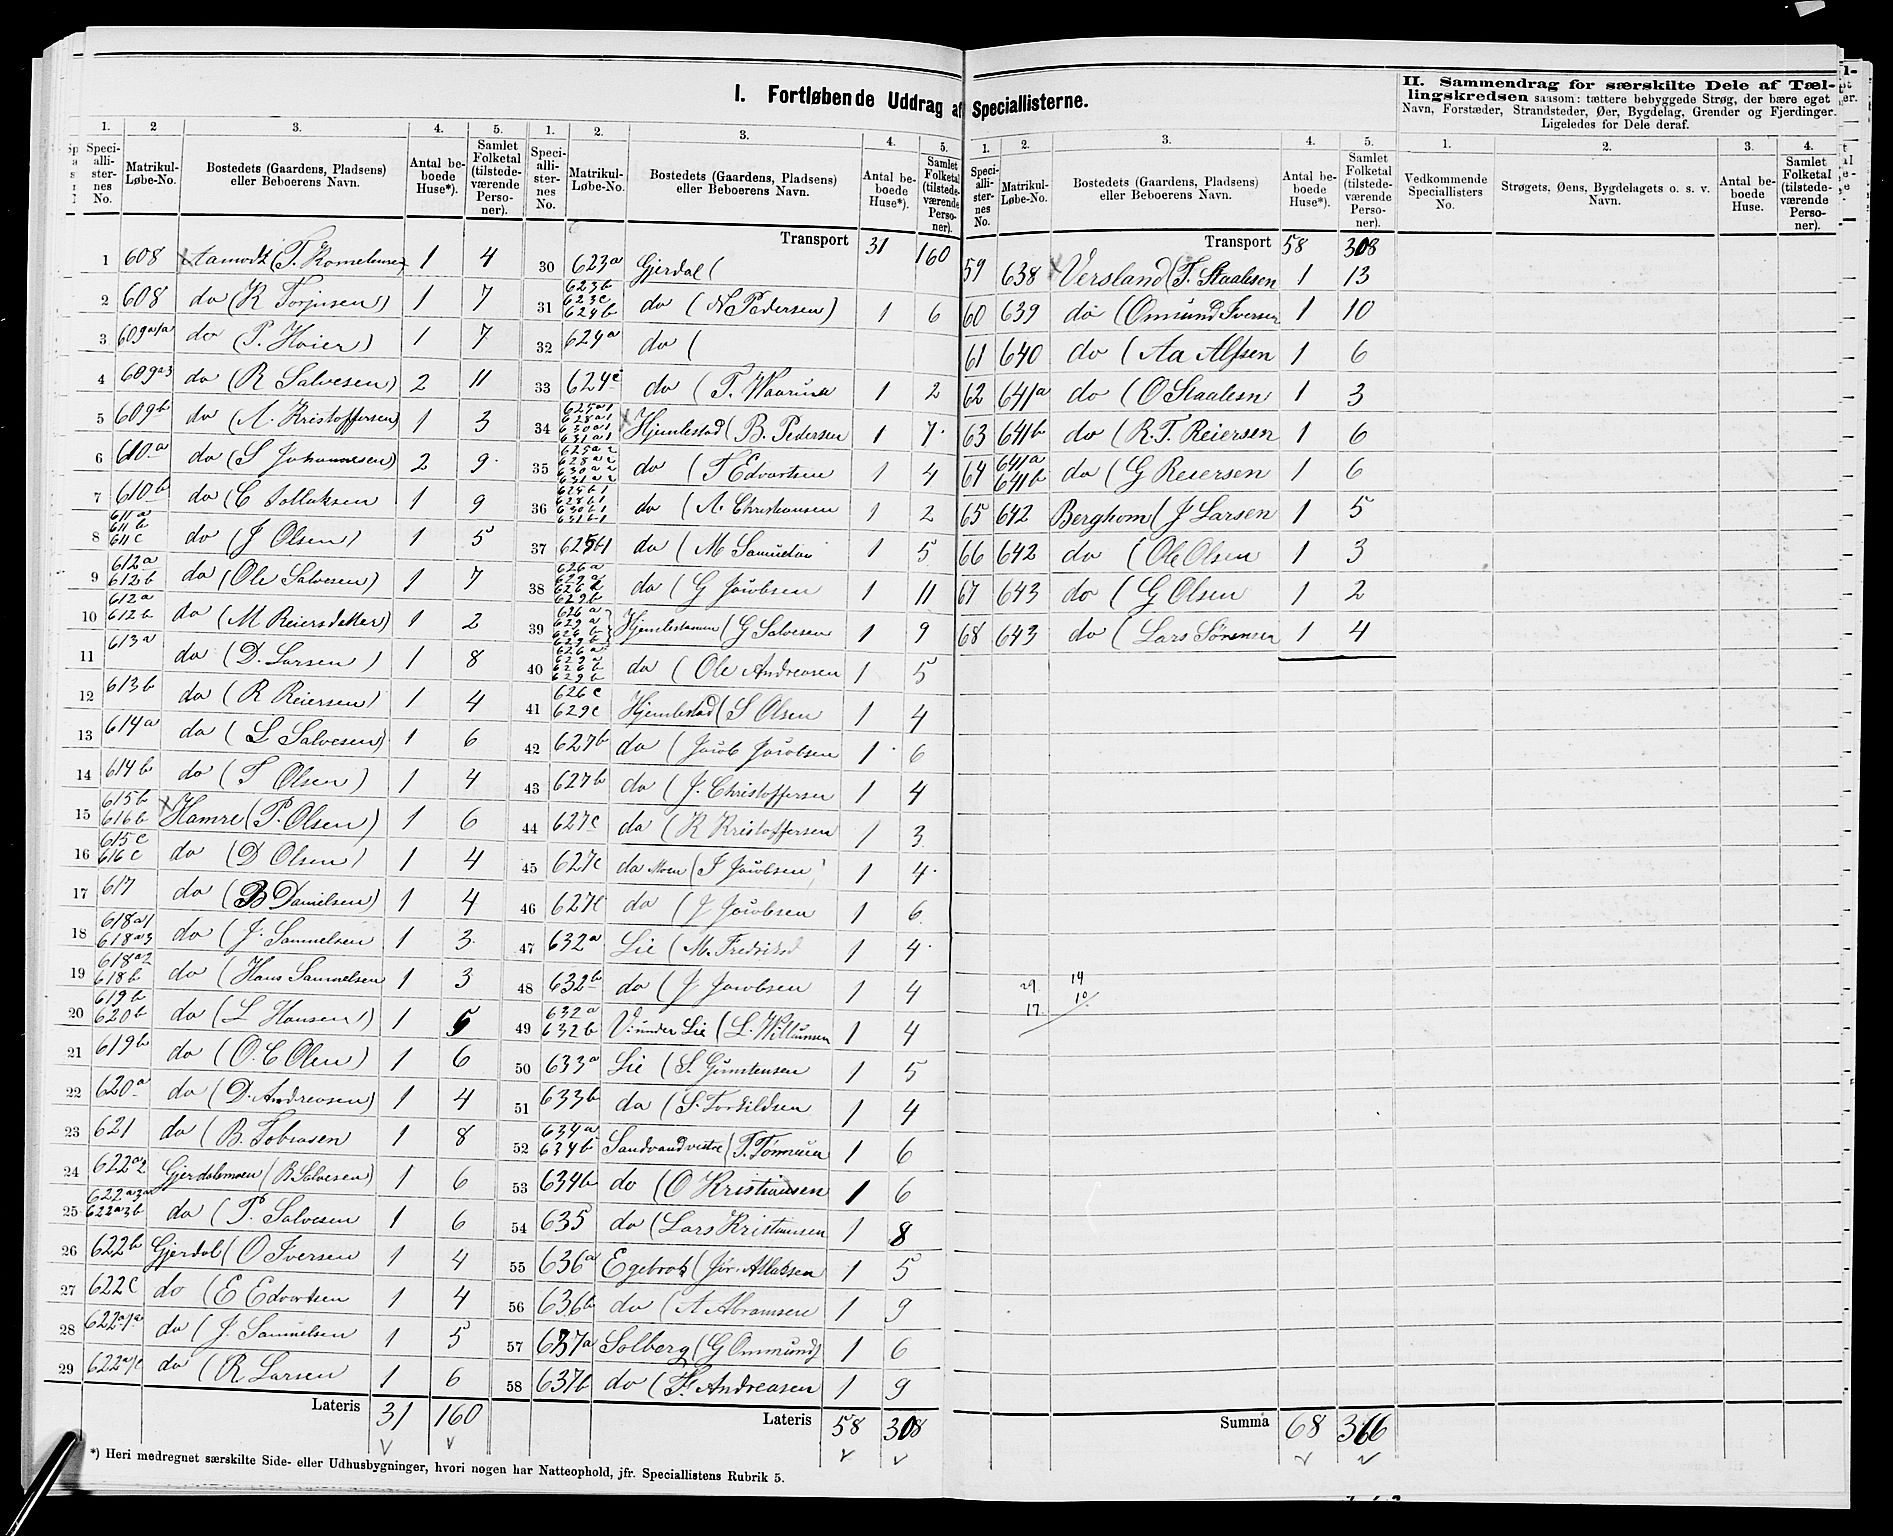 I. Fortløbende Uddrag af Speciallisterne.
II. Sammendrag for særskilte Dele af Tæl-
lingskredsen saasom: tættere bebyggede Strøg, der bære eget
Navn, Forstæder, Strandsteder, Øer, Bygdelag, Grender og Fjerdinger.
Ligeledes for Dele deraf.
1. 2 3. 4. 5.
Speci-
alli-
ster-
nes
No.
Matrikul-
Løbe-No.
Bostedets (Gaardens, Pladsens)
eller Beboerens Navn.
Antal be-
boede
Huse*).
Samlet
Folketal
(tilstede-
værende
Perso-
ner).
1 608 Aamodt (T. 1 4
2 608 do (K Torjusen) 1 7
3 609a1a do (P. Høier) 1 7
4 609a3 do (R Salvesen) 2 11
5 609b do (A. Kristoffersen) 1 3
6 610a do (S Johannesen) 2 9
7 610b do (C 1 9
8 611a 611b 611c do (J Olsen) 1 5
9 612a 612b do (Ole Salvesen) 1 7
10 612a 612b do (M 1 2
11 613a do (D. Larsen) 1 8
12 613b do (R Reiersen) 1 4
13 614a do (L Salvesen) 1 6
14 614b do (T Olsen) 1 4
15 615b 616b Hamre (P. Olsen) 1 6
16 615c 616c do (D Olsen) 1 4
17 617 do (B Danielsen) 1 4
18 618a1 618a3 do (J. Samuelsen 1 3
19 618a2 618b do (Hans Samuelsen 1 3
20 619b 620b do (L Hansen) 1 5
21 619b do (O. C Olen) 1 6
22 620a do (D. Andreasen) 1 4
23 621 do (B. Tobiasen 1 8
24 622a2 Gjerdalsmoen (B. Salvesen) 1 6
25 622a3a 622a3b do (P. Salvesen 1 6
26 622b Gjerdal (O Iversen 1 4
27 622c do (E Edvartsen 1 4
28 622a1a do (J. Samuelsen 1 5
29 622a1c do (R Larsen 1 6
Lateris 31 160
1. 2. 3. 4. 5.
Speci-
alli-
ster-
nes
No.
Matrikul-
Løbe-No.
Bostedets (Gaardens, Pladsens)
eller Beboerens Navn.
Antal be-
boede
Huse*).
Samlet
Folketal
(tilstede-
værende
Perso-
ner).
Transport 31 160
30 623a Gjerdal (
31 623b 623c 624b do (N Pedersen) 1 6
32 624a do (
33 624c do (T. 1 2
34 625a1 628a1 630a1 631a1 Hjemlestad (B. Pedersen 1 7
35 625a2 628a2 630a2 631a2 do (T Edvartsen 1 4
36 625b1 628b1 630b1 631b1 do (A. Christiansen 1 2
37 625b1 do (M 1 5
38 626a 629a 626b 629b do (G Jacobsen 1 11
39 626a 629a 626b 629b (G Salvesen 1 9
40 626a 629a 626b 629b do (Ole Andreasen 1 5
41 626c 629c Hjemlestad (S Olsen 1 4
42 627b do (Jacob Jacobsen 1 6
43 627b do (J. Christoffersen 1 4
44 627c do (K Kristoffersen 1 3
45 627c do Moen (T Jacobsen) 1 4
46 627c do (J Jacobsen 1 6
47 632a Lie (M. 1 4
48 632b do (J Jacobsen 1 4
49 632a 632b V: under Lie (L. 1 4
50 633a Lie (S. Gunstensen 1 5
51 633b do (S. Torkildsen 1 4
52 634a 634b Sandvand vestre (T. 1 6
53 634b do (O Kristiansen 1 6
54 635 do (Lars Kristiansen 1 8
55 636a (Jør. 1 5
56 636b do (A Abramsen 1 9
57 637a Solberg (G Ommund) 1 6
58 637b do (F. Andreasen 1 9
Lateris 58 308
1. 2. 3. 4. 5.
Speci-
alli-
ster-
nes
No.
Matrikul-
Løbe-No.
Bostedets (Gaardens, Pladsens)
eller Beboerens Navn.
Antal be-
boede
Huse*).
Samlet
Folketal
(tilstede-
værende
Perso-
ner).
Transport 58 308
59 638 Versland (T. Staalesen 1 13
60 639 do (Omund Iversen 1 10
61 640 do (Aa Alfsen 1 6
62 641a do (O Staalesn 1 3
63 641b do (R. T. Reiersen 1 6
64 641a 641b do (G Reiersen 1 6
65 642 Berghom (J Larsen 1 5
66 642 do (Ole Olsen 1 3
67 643 do (G Olsen 1 2
68 643 do (Lars Sørensen 1 4
29 14
17 10
Summa 68 366
1. 2. 3. 4.
Vedkommende
Speciallisters
No.
Strøgets, Øens, Bygdelagets o. s. v.
Navn.
Antal be-
boede
Huse.
Samlet
Folketal
(tilstede-
værende
Perso-
ner).
*) Heri medregnet særskilte Side- eller Udhusbygninger, hvori nogen har Natteophold, jfr. Speciallistens Rubrik 5.